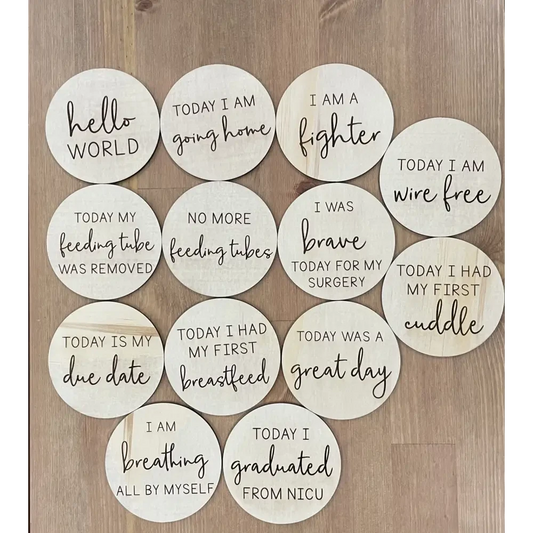 hello
WORLD
TODAY I AM
going home
I AM A
fighter
TODAY I AM
wire free
TODAY MY
feeding tube
WAS REMOVED
NO MORE
feeding tubes
I WAS
brave
TODAY FOR MY
SURGERY
TODAY I HAD
MY FIRST
cuddle
TODAY IS MY
due date
TODAY I HAD
MY FIRST
breastfeed
TODAY WAS A
great day
I AM
breathing
ALL BY MYSELF
TODAY I
graduated
FROM NICU